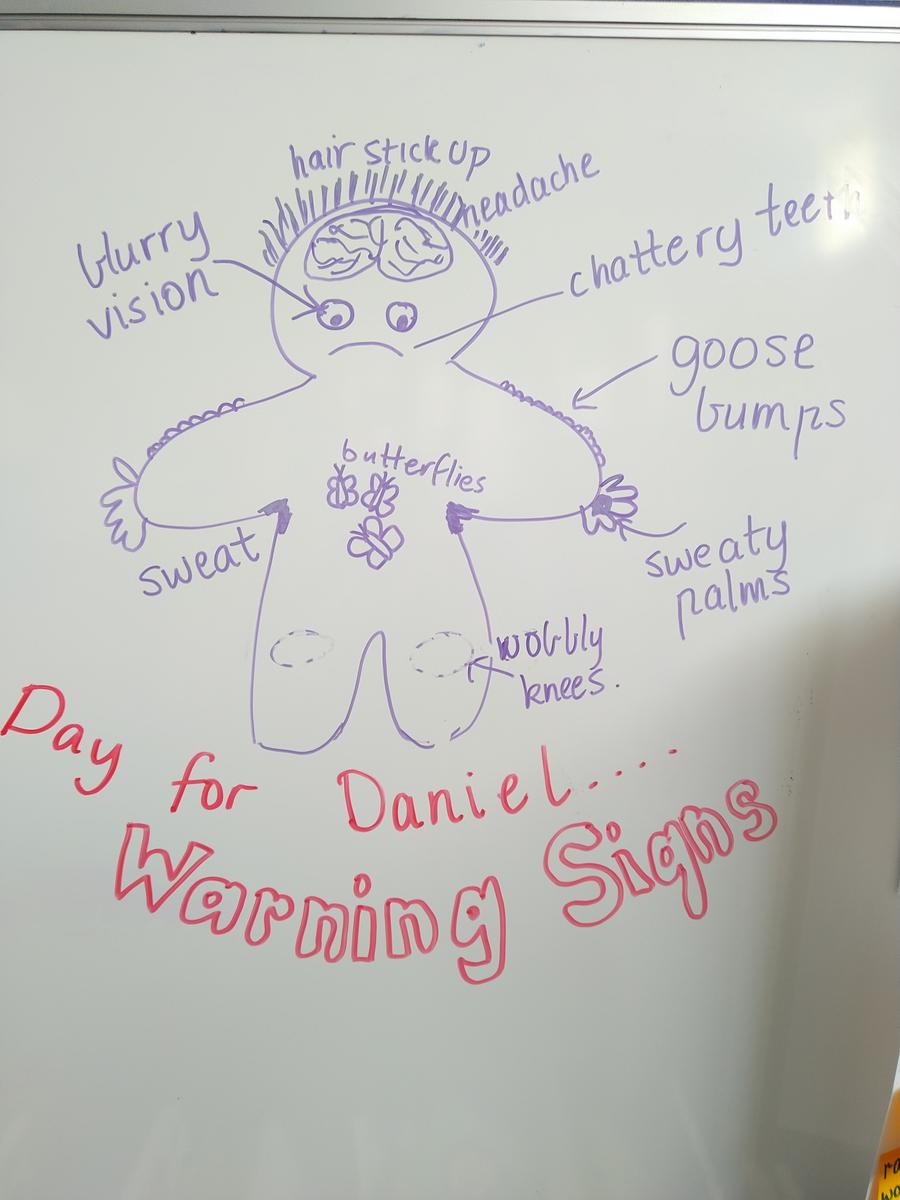 hair stick up
headache
blurry
vision
chattery teeth
goose
bumps
butterflies
sweat
sweaty
palms
wobbly
knees.
Day for Daniel....
Warning Signs